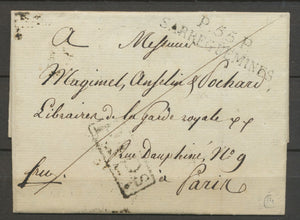 P.55.P.
SARREGUEMINES
A Messieurs
Magimel, Anselin & Pochard,
Libraires de la garde royale
Rue Dauphine, N.º 9
à Paris